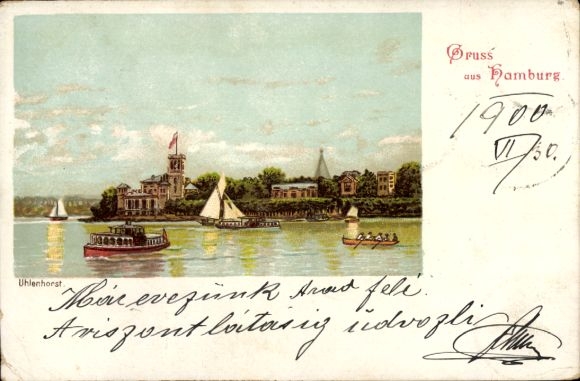 Gruss
aus Hamburg.
1900
VII/30.
Uhlenhorst.
Már evezünk Arad felé.
A viszontlátásig üdvözli